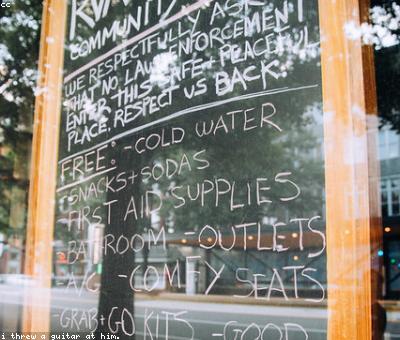 cc
COMMUNITY
WE RESPECTFULLY ASK
THAT NO LAW ENFORCEMENT
ENTER THIS SAFE + PEACEFUL
PLACE. RESPECT US BACK.
FREE: -COLD WATER
-SNACKS+SODAS
-FIRST AID SUPPLIES
-BATHROOM -OUTLETS
-A/C -COMFY SEATS
-GRAB+GO KITS -GOOD
i threw a guitar at him.